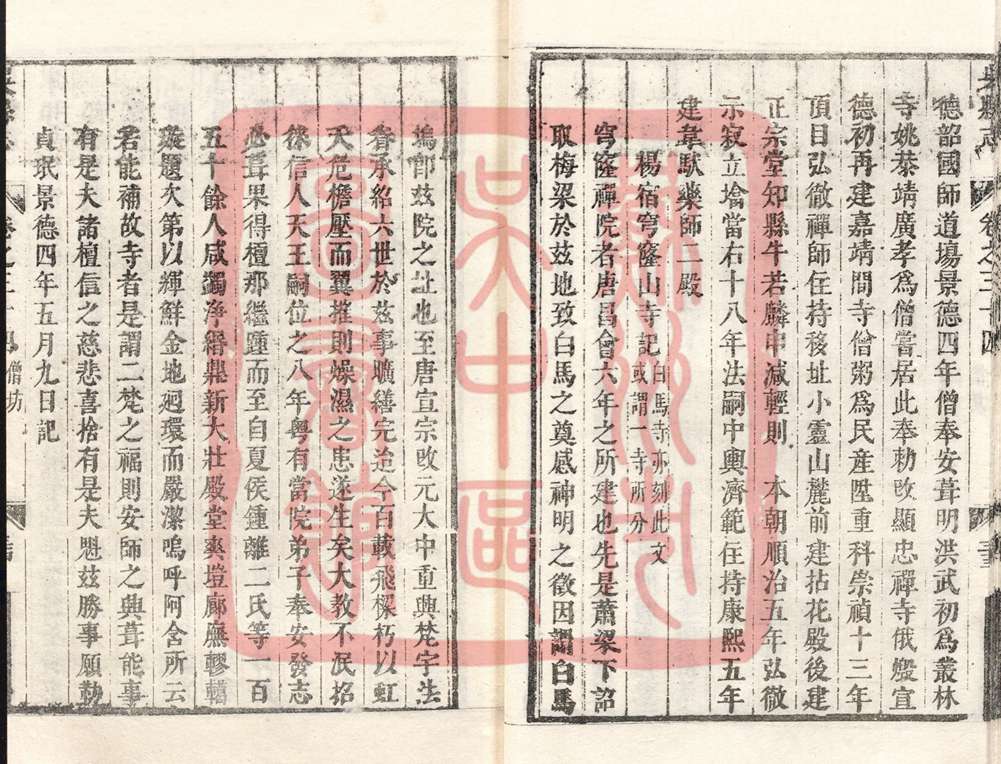 德韶國師道場景德四年僧奉安葺明洪武初爲叢林
寺姚恭靖廣孝爲僧嘗居此奉勅改顯忠禪寺俄燬宣
德初再建嘉靖間寺僧粥爲民産陞重科崇禎十三年
項目弘徹禪師住持移址小靈山麓前建拈花殿後建
正宗堂知縣牛若麟申減輕則 本朝順治五年弘徹
示寂立塔當右十八年法嗣中興濟範住持康熙五年
建韋馱藥師二殿
楊宿穹窿山寺記 白馬寺亦刻此文
或謂一寺所分
穹窿禪院者唐昌會六年之所建也先是蕭梁下詔
取梅梁於茲地致白馬之奠感神明之徵因謂白馬
塢即茲院之址也至唐宣宗改元大中重興梵宇法
眷承紹六世於茲事曠繕完迨今百載飛樑朽以虹
夭危檐壓而翼摧則燥濕之患遂生矣大教不泯招
徠信人天王嗣位之八年粤有當院弟子奉安發志
必葺果得檀那繼踵而至自夏侯鍾離二氏等一百
五十餘人咸蠲淨𦈢鼎新大壯殿堂爽塏廊廡轇轕
璇題次第以輝鮮金地廻環而嚴潔嗚呼阿含所云
若能補故寺者是謂二梵之福則安師之興葺能事
有是夫諸檀信之慈悲喜捨有是夫剋茲勝事願勒
貞珉景德四年五月九日記
吳縣志
卷之三十四
僧坊